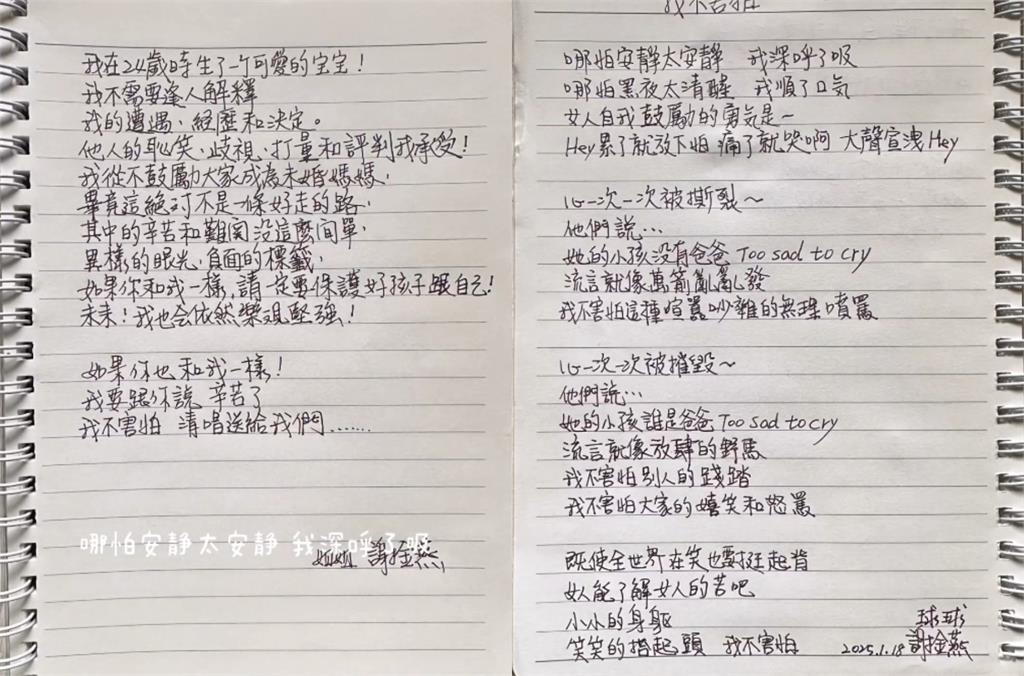 我在24歲時生了一个可愛的宝宝！
我不需要逢人解釋
我的遭遇、經歷和決定。
他人的恥笑、歧視、打量和評判我承受！
我從不鼓勵大家成為未婚媽媽，
畢竟這絕对不是一條好走的路，
其中的辛苦和難関沒這麼间單，
異樣的眼光，負面的標籤，
如果你和我一樣，請一定要保護好孩子跟自己！
未来！我也会依然樂观堅強！
如果你也和我一樣！
我要跟你說 辛苦了
我不害怕 清唱送給我們.......
哪怕安静太安静 我深呼了吸
姐姐 謝金燕
我不害怕
哪怕安静太安静 我深呼了吸
哪怕黑夜太清醒 我順了口气
女人自我鼓勵的勇氣是~
Hey累了就放下怕 痛了就哭啊 大聲宣洩Hey
心一次一次被撕裂～
他們說…
她的小孩没有爸爸 Too sad to cry
流言就像萬箭亂亂發
我不害怕這種喧囂吵雜的無理噴罵
心一次一次被摧毀～
他們說…
她的小孩誰是爸爸 Too sad to cry
流言就像放肆的野馬
我不害怕別人的踐踏
我不害怕大家的嬉笑和怒罵
既使全世界在笑也要挺起背
女人能了解女人的苦吧
小小的身軀
笑笑的抬起頭 我不害怕
球球
2025.1.18 謝金燕